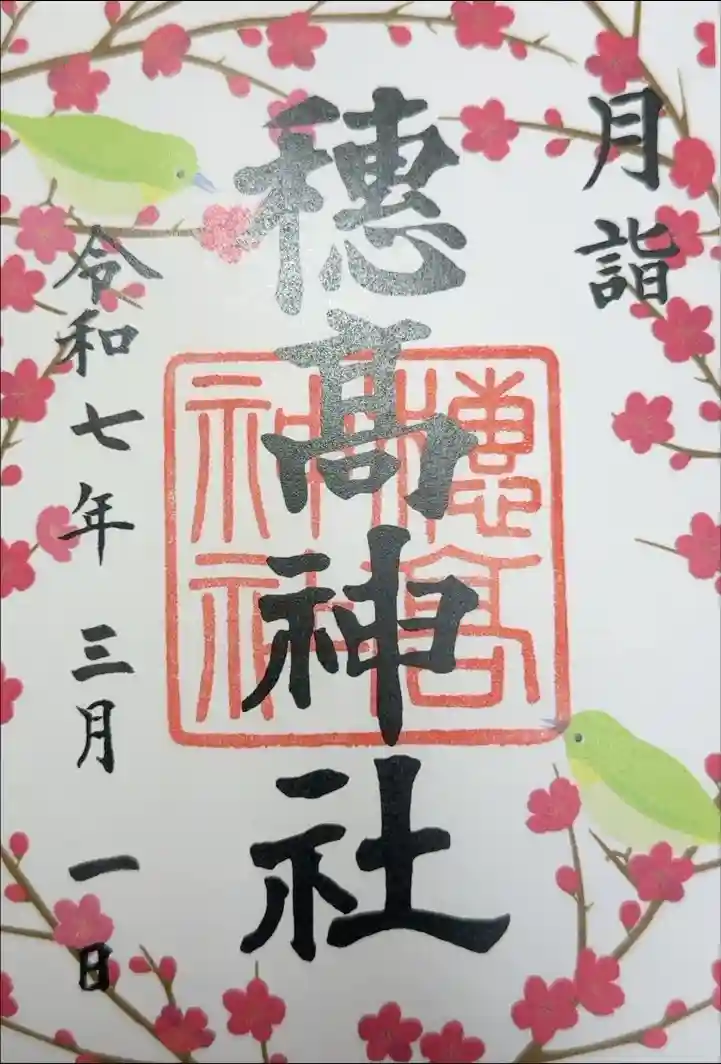 月詣
穂髙神社
穂髙
神社
令和七年 三月 一日